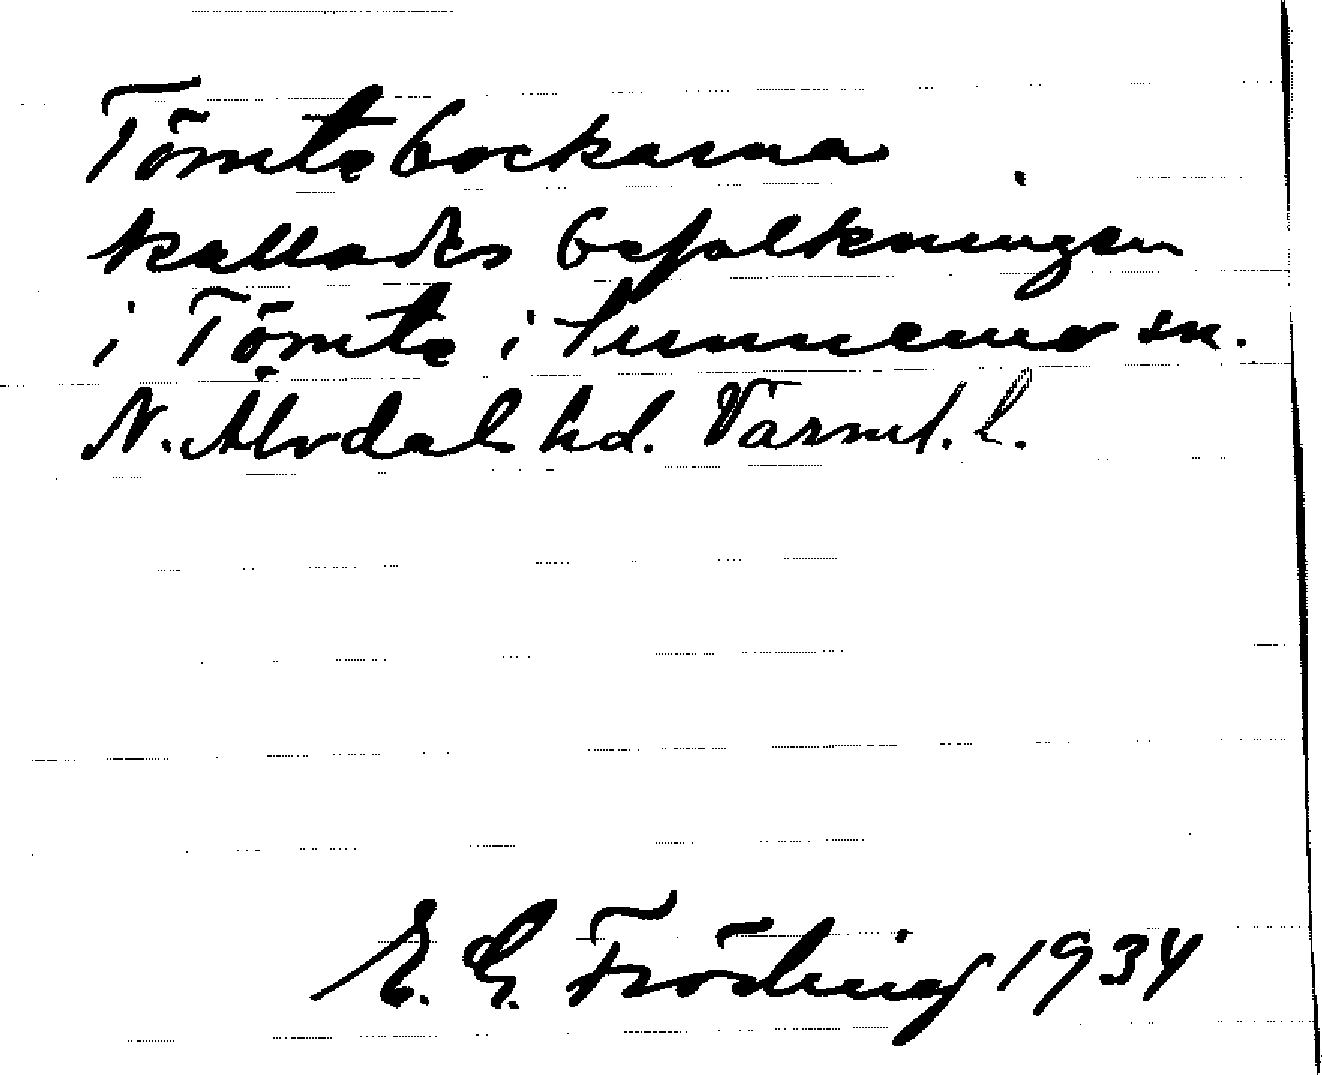 Tömtebockarna
kallades befolkningen
i Tömte i Sunnemo sn.
N. Älvdals hd. Värml. l.
E. G. Fröding 1934